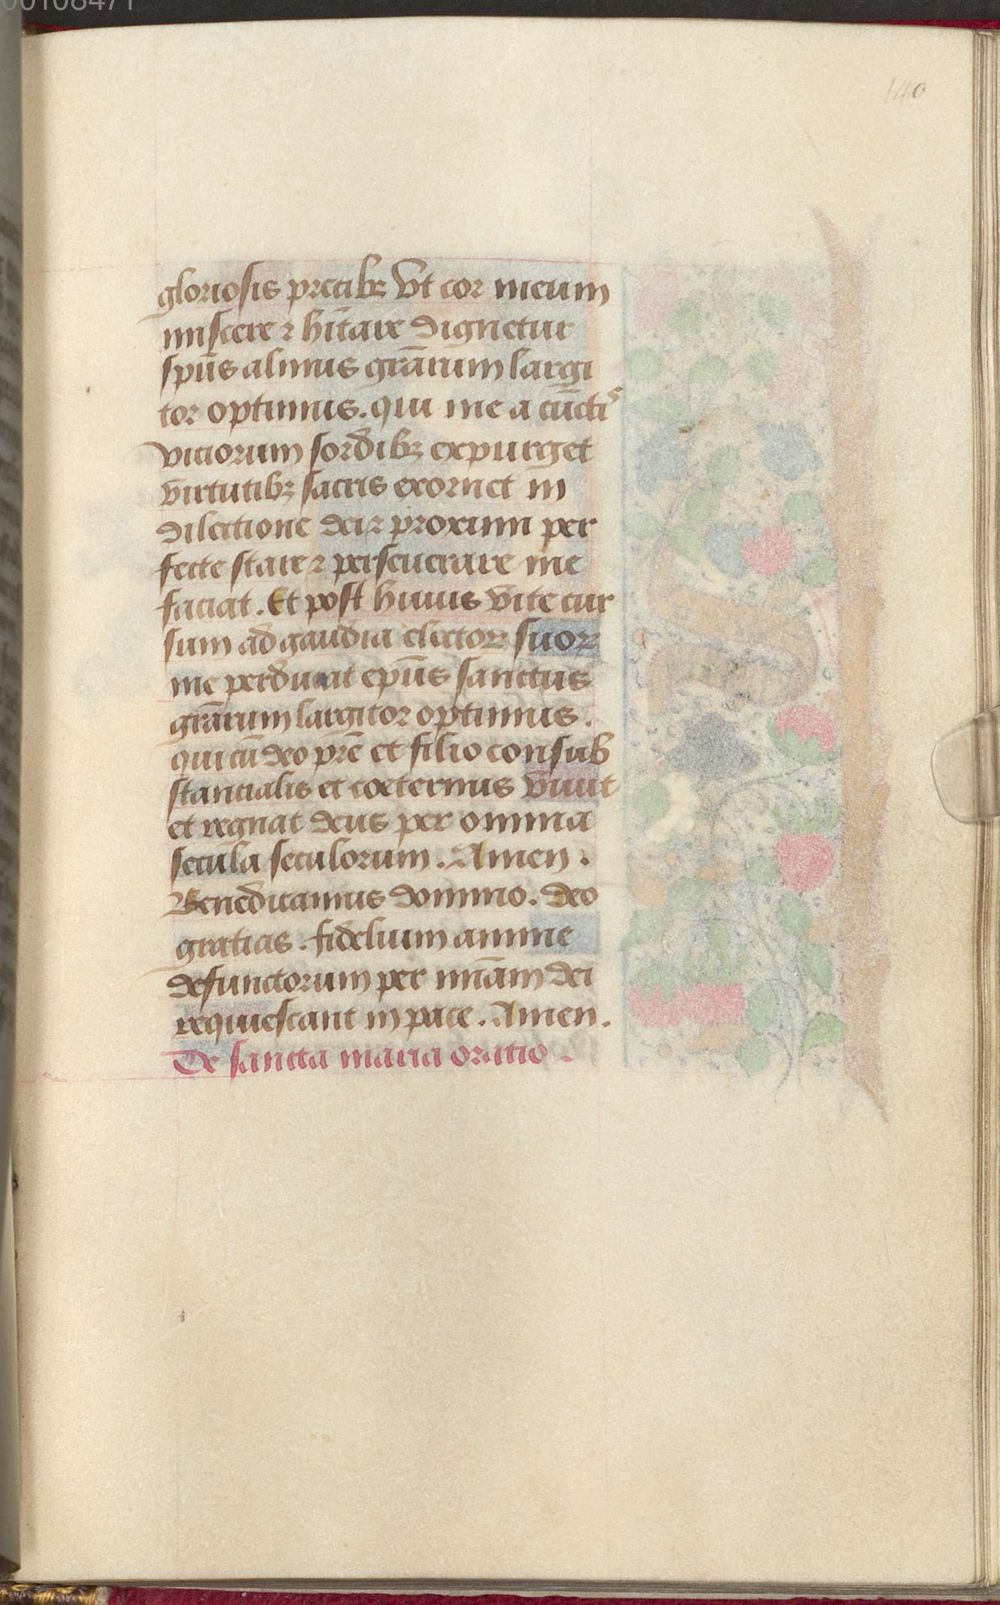 00108471
140
gloriosis precibꝫ Vt cor meum
inuiscere ⁊ hītare dignetur
spūs almus grāꝝum largi
tor optimus. qui me a cūcti s
viciorum sordibꝫ expurget
virtutibꝫ sacris exornet in
dilectione dei ⁊ proximi per
fecte stare ⁊ perseuerare me
faciat. Et post huius vite cur
sum ad gaudia electoꝝ suoꝝ
me perducat epūs sanctus
grāꝝum largitor optimus.
qui cū deo pr̄e et filio consub
stancialis et coeternus viuit
et regnat deus per omnia
secula seculorum. Amen.
Benedicamus domino. deo
gratias. fidelium anime
defunctorum per mīam dei
requiescant in pace. Amen.
De sancta maria oratio.